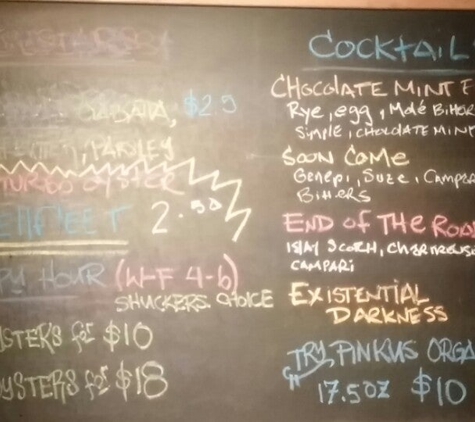 $2.5
PARSLEY
OYSTER
2.50
HOUR (W-F 4-6)
SHUCKERS CHOICE
STERS for $10
OYSTERS for $18
COCKTAIL
CHOCOLATE MINT F
Rye, egg, Molé Bitter
Simple, CHOCOLATE MINT
SOON COME
Genepi, Suze, Campa
Bitters
END OF THE ROA
ISLAY SCOTCH, CHARTREUSE
CAMPARI
EXISTENTIAL
DARKNESS
TRY PINKUS ORGA
17.5OZ $10